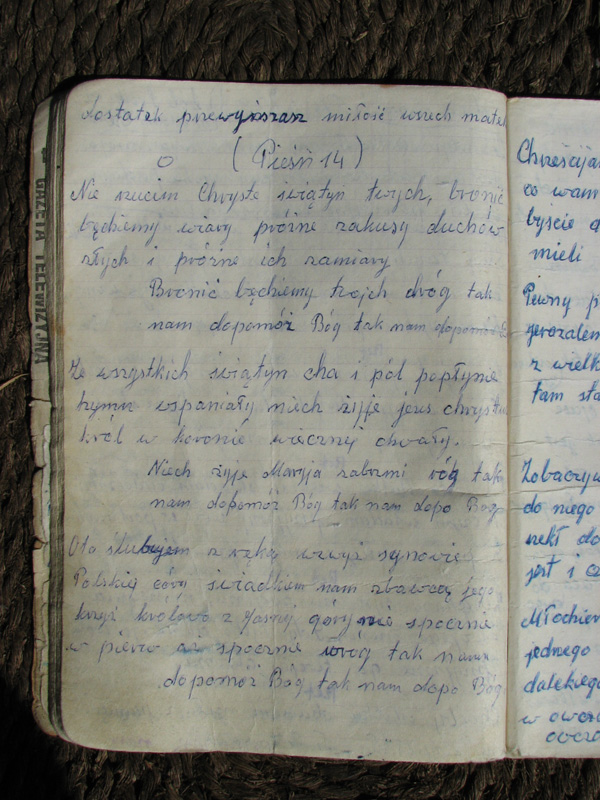 dostatek przewyższasz miłość wszech matek
(Pieśń 14)
Nie rzucim Chryste świątyn twych, bronić
będziemy wiary próżne zakusy duchów
złych i próżne ich zamiary
Bronić będziemy twojch dróg tak
nam dopomóż Bóg tak nam dopomóż
Ze wszystkich świątyn cha i pól popłynie
hymn wspaniały niech żyje jezus chrystu
król w koronie wiecznej chwały.
Niech żyje Maryja zabrzmi róg tak
nam dopomóż Bóg tak nam dopo Bóg
Oto ślubujem z ręką wzwyż synowie
Polskiej córy świadkiem nam zbawcą jego
krzyż królowo z Jasnej góry nie spocznie
w pierw aż spocznie wróg tak nam
dopomóż Bóg tak nam dopo Bóg
GAZETA TELEWIZYJNA
Chrześcijan
co wam
byście
mieli
Pewny
jerozalem
z wielk
tam sta
Zobaczyw
do niego
rzekł do
jest i
Młodzien
jednego
dalekiego
w owocz